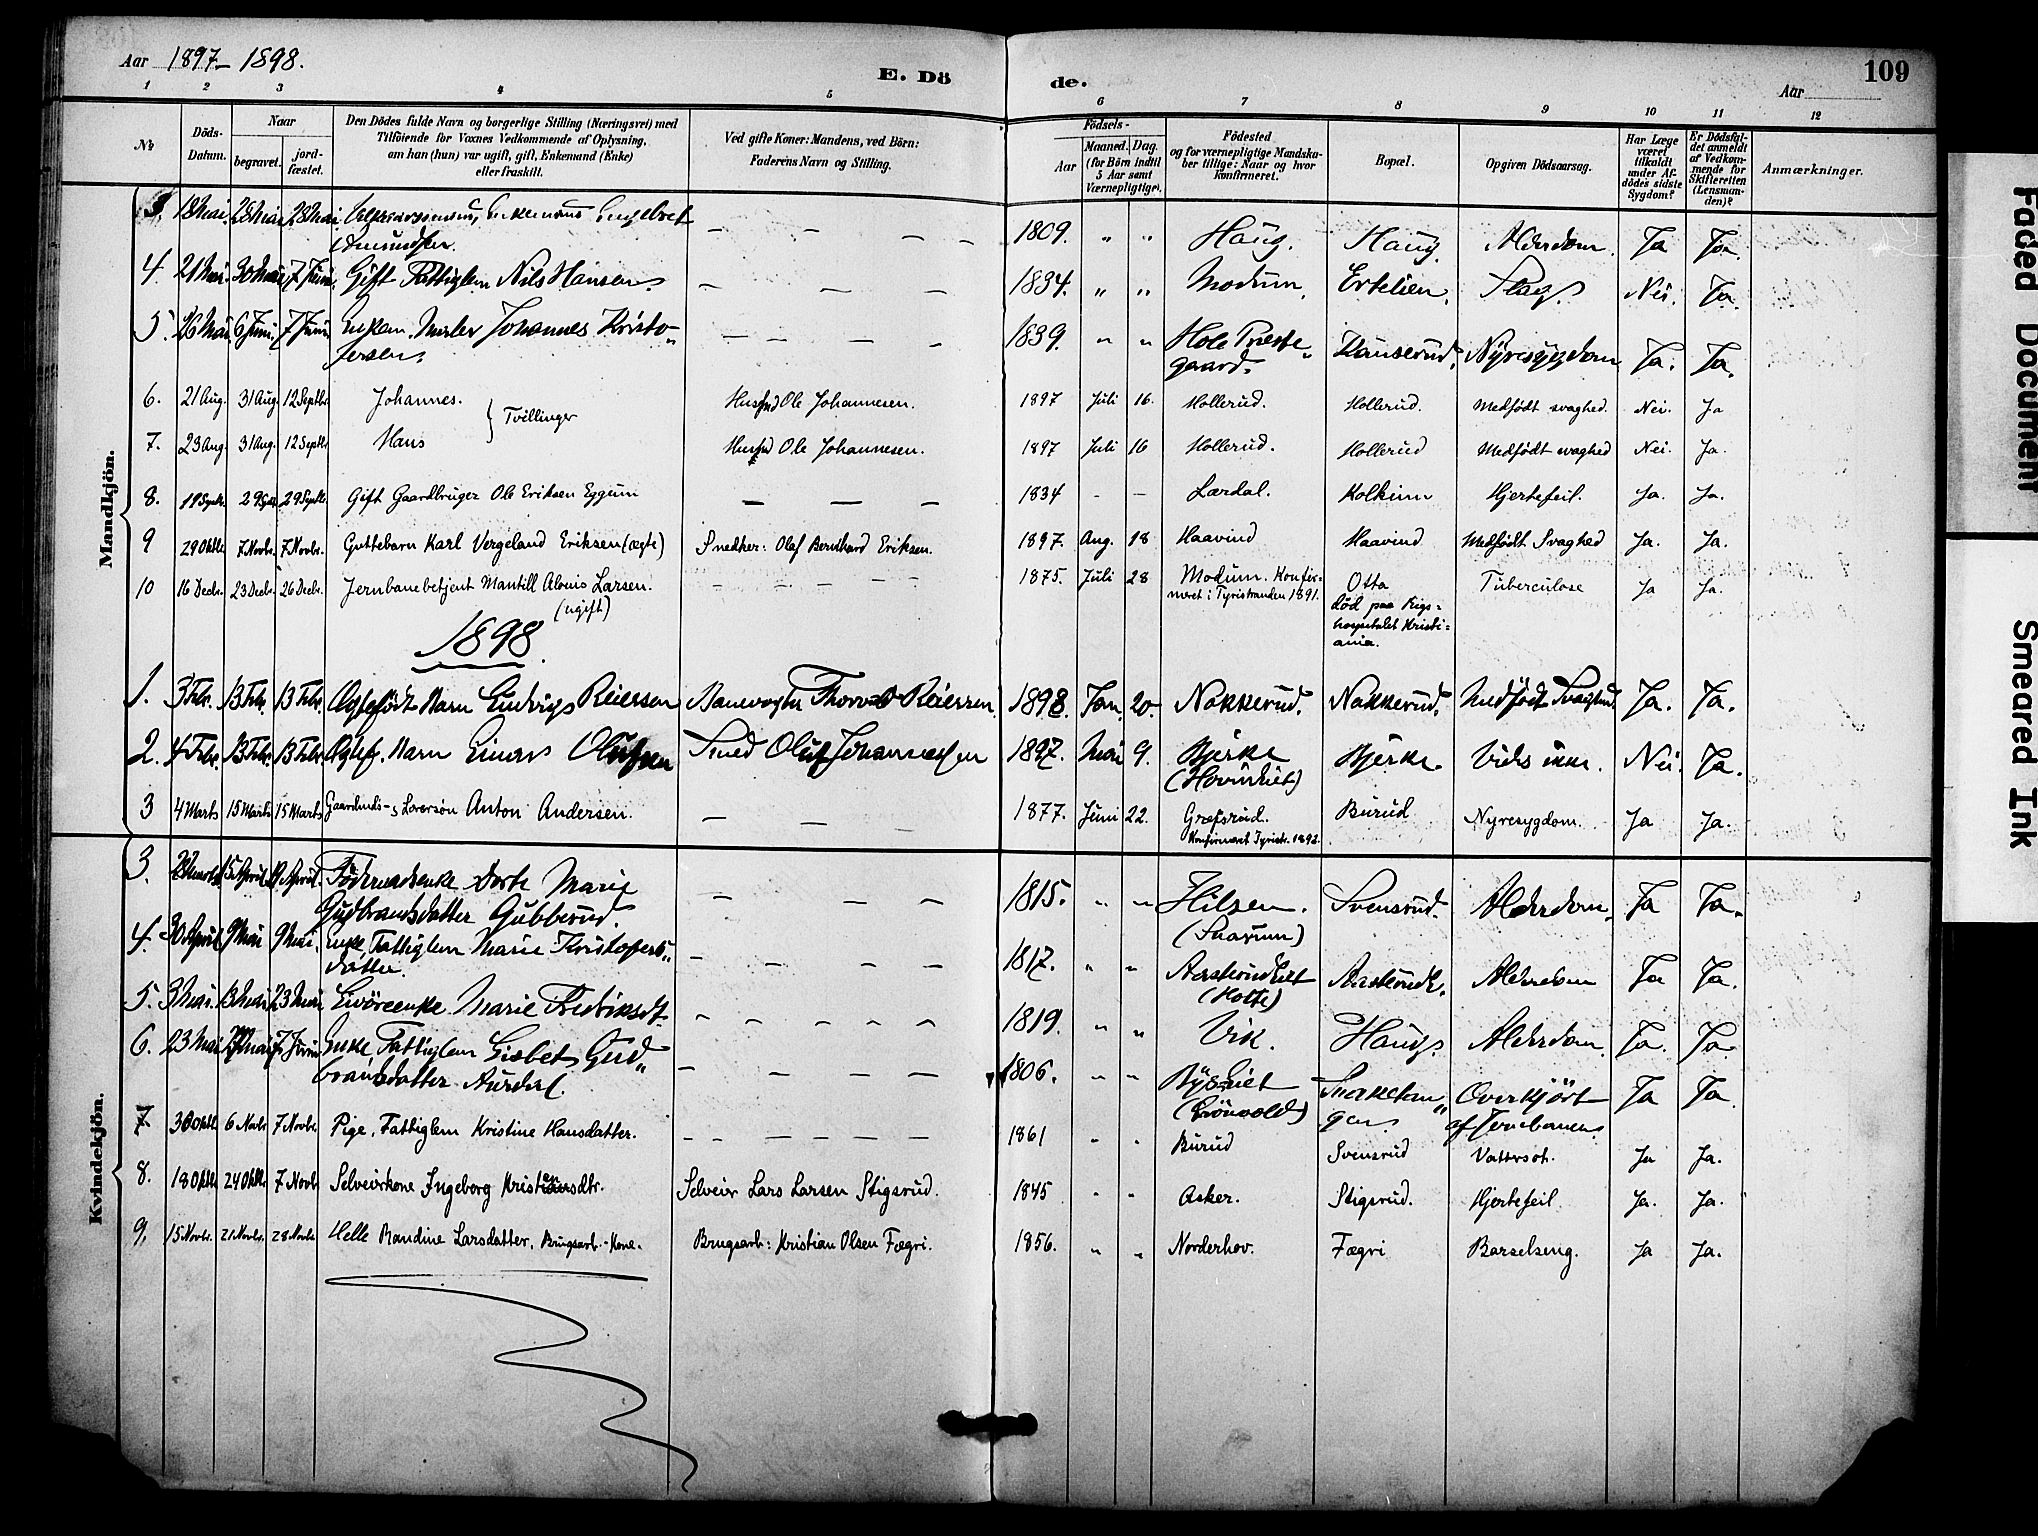 Aar 1897-1898.
E. Dö
de.
Aar
109
1 2 3 4 5 6 7 8 9 10 11 12
№
Döds-
Datum.
Naar
begravet.
jord-
fæstet.
Den Dödes fulde Navn og borgerlige Stilling (Næringsvei) med
Tilföiende for Voxnes Vedkommende af Oplysning,
om han (hun) var ugift, gift, Enkemand (Enke)
eller fraskilt.
Ved gifte Koner: Mandens, ved Börn:
Faderens Navn og Stilling.
Födsels-
Aar
Maaned. Dag.
(for Börn indtil
5 Aar samt
Værnepligtige).
Födested
og for værnepligtige Mandska-
ber tillige: Naar og hvor
konfirmeret.
Bopæl.
Opgiven Dödsaarsag.
Har Læge
været
tilkaldt
under Af-
dödes sidste
Sygdom?
Er Dödsfal-
det anmeldt
af Vedkom-
mende for
Skifteretten
(Lensman-
den)?
Anmærkninger.
Mandkjön.
3. 18 Mai. 28 Mai 28 Mai. Enkemand Engebret
Amundsen — — — — 1809. " " Haug. Haug. Alderdom. Ja Ja.
4. 21 Mai. 30 Mai 7 Juni. Gift Fattiglem Nils Hansen. — — — — 1834. " " Modum. Ertelien. Slag. Nei. Ja.
5. 26 Mai 6 Juni. 7 Juni Enkem. Maler Johannes Kristo-
fersen. — — — — 1839. " " Hole Preste-
gaard. Rauserud. Nyresygdom Ja. Ja.
6. 21 Aug. 31 Aug. 12 Septbr. Johannes. Husmd Ole Johannesen. 1897 Juli 16. Hollerud. Hollerud. Medfödt svaghed. Nei. Ja
} Tvillinger
7. 23 Aug. 31 Aug. 12 Septbr. Hans Husmd Ole Johannesen. 1897 Juli 16 Hollerud. Hollerud Medfödt svaghed Nei. Ja.
8. 19 Septbr. 29 Septbr. 29 Septbr. Gift Gaardbruger Ole Eriksen Eggum — — — 1834 - — Lærdal. Kolkinn Hjertefeil. Ja. Ja.
9 29 Oktbr. 7 Novbr. 7 Novbr. Guttebarn Karl Vergeland Eriksen (ægte) Snedker: Olaf Bernhard Eriksen. 1897. Aug. 18 Haavind Haavind Medfödt Svaghed Ja. Ja.
10 16 Decbr. 23 Decbr. 26 Decbr. Jernbanebetjent Mantill Alonis Larsen.
(ugift) — — — — 1875. Juli 28 Modum. Konfir-
meret i Tyristranden 1891. Otta
död paa Rigs-
hospitalet Kristi-
ania. Tuberculose Ja Ja.
1898
1. 3 Febr. 13 Febr. 13 Febr. Ægtefödt Barn Ludvig Reiersen Banevogter Thorvald Reiersen. 1898. Jan. 20. Nakkerud. Nakkerud. Medfödt Svaghed. Ja. Ja.
2. 4 Febr. 13 Febr. 13 Febr. Ægtef. Barn Einar Olufsen Smed Oluf Johannessen 1897. Mai 9. Bjerke
(Hovindeiet) Bjerke. Vides ikke. Nei. Ja.
3 4 Marts 15 Marts 15 Marts Gaardmds- & Lærersön Anton Andersen. — — — 1877. Juni 22. Græfsrud.
Konfirmeret Tyristr. 1892. Burud Nyresygdom. Ja Ja.
Kvindekjön.
3. 28 Marts 15 April. 19 April. Föderaadsenke Dorte Marie
Gudbrandsdatter Gubberud — — — 1815. " " Hilsen.
(Snarum) Svensrud. Alderdom. Ja Ja.
4. 30 April 9 Mai 9 Mai. Enke Fattiglem Marie Kristofers-
datter. — — — — 1817. " " Aasterudeiet
(Holte) Aasterudei. Alderdom Ja Ja.
5. 3 Mai. 13 Mai 23 Mai Livöreenke Marie Fredriksdt. — — — — 1819. " " Vik. Haug. Alderdom. Ja. Ja
6. 23 Mai 29 Mai 7 Juni Enke, Fattiglem Lisbet Gud-
brandsdatter Aurdal. — — — — 1806. " " Bÿeiet
(Grönvold) Snekketan-
gen. Overkjört
af Jernbanen. Ja Ja.
7. 30 Oktbr. 6 Novbr. 7 Novbr. Pige, Fattiglem Kristine Hansdatter. — — — — 1861 " " Burud Svensrud Vattersot. Ja Ja.
8. 18 Oktbr. 24 Oktbr. 7 Novbr. Selveierkone Ingeborg Kristiansdtr. Selveier Lars Larsen Stigsrud. 1845 " " Asker. Stigsrud. Hjertefeil. Ja. Ja.
9. 15 Novbr. 21 Novbr. 28 Novbr. Helle Randine Larsdatter, Brugsarb.-Kone. Brugsarb: Kristian Olsen Fægri. 1856. " " Norderhov. Fægri Barselseng. Ja Ja.
Faded Document
Smeared Ink